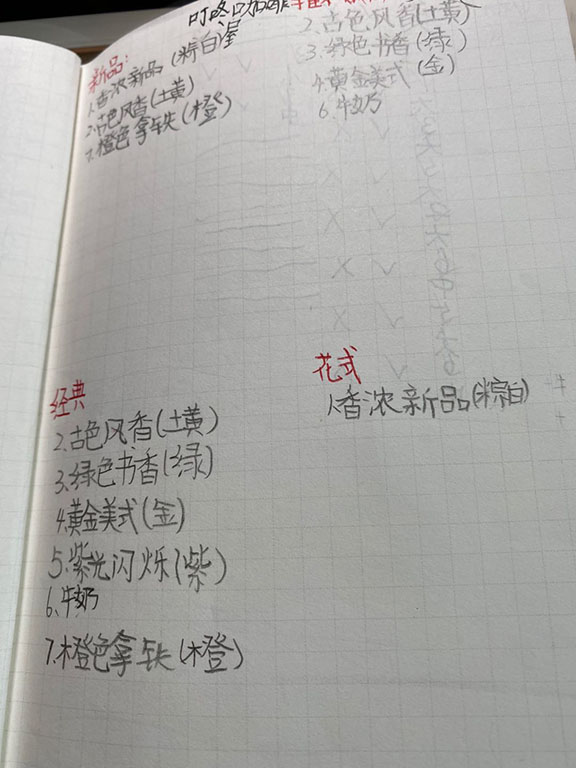 叮咚咖啡屋
新品:
1.香浓新品(粽白)
2.古色风香(土黄)
7.橙色拿铁(橙)
2.古色风香(土黄)
3.绿色书香(绿)
4.黄金美式(金)
6.牛奶
经典
2.古色风香(土黄)
3.绿色书香(绿)
4.黄金美式(金)
5.紫光闪烁(紫)
6.牛奶
7.橙色拿铁(橙)
花式
1.香浓新品(粽白)